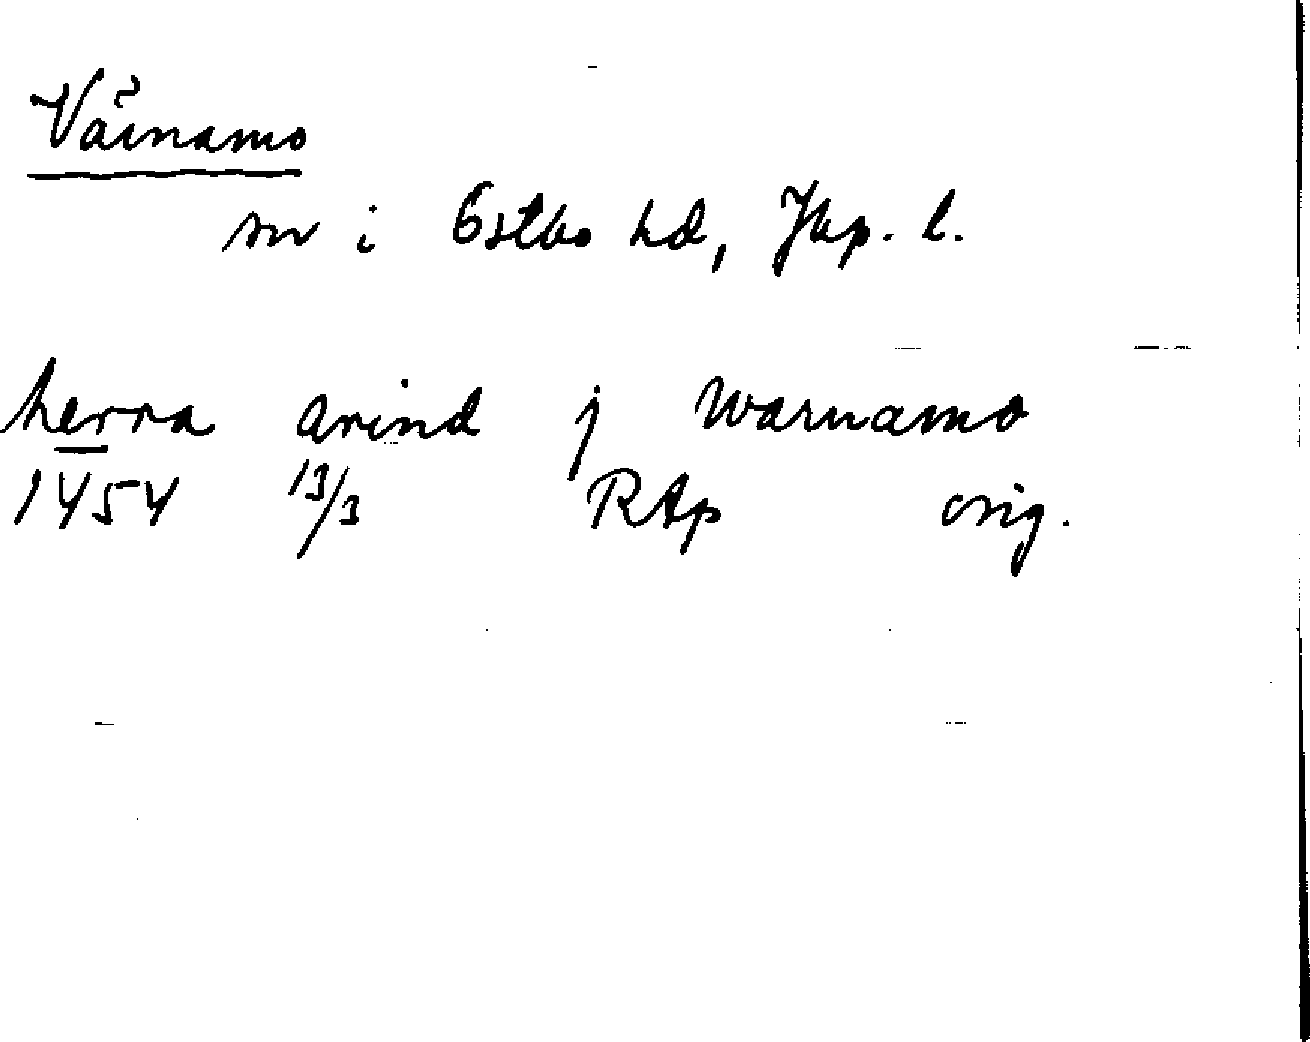 Värnamo
sn i Östbo hd, Jkp. l.
herra arind j warnamo
1454 13/3 RAp orig.